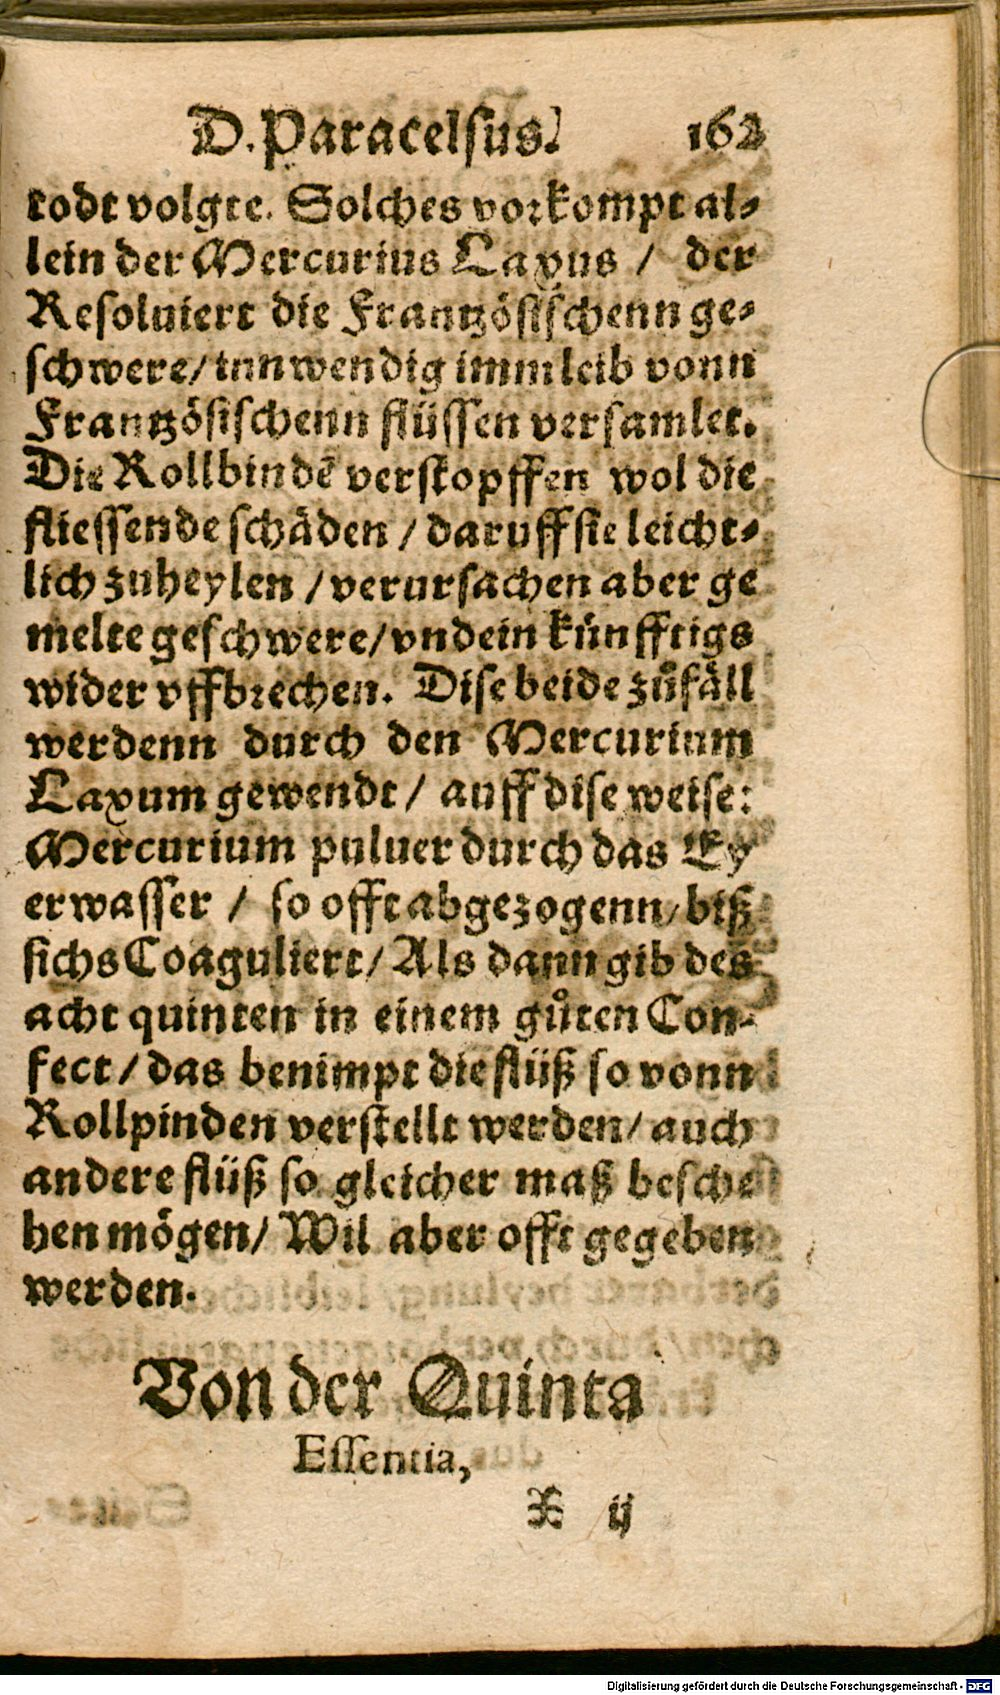 D. Paracelsus. 162
todt volgte. Solches vorkompt al⸗
lein der Mercurius Laxus / der
Resoluiert die Frantzösischenn ge⸗
schwere / innwendig imm leib vonn
Frantzösischenn flüssen versamlet.
Die Rollbindē verstopffen wol die
fliessende schäden / daruff sie leicht⸗
lich zuheylen / verursachen aber ge
melte geschwere / vnd ein künfftigs
wider vffbrechen. Dise beide zůfäll
werdenn durch den Mercurium
Laxum gewendt / auff dise weise:
Mercurium puluer durch das Ey
erwasser / so offt abgezogenn / biß
sichs Coaguliert / Als dann gib des
acht quinten in einem gůten Con⸗
fect / das benimpt die flüß so vonn
Rollpinden verstellt werden / auch
andere flüß so gleicher maß besche
hen mögen / Wil aber offt gegeben
werden.
Von der Quinta
Essentia,
X ij
Digitalisierung gefördert durch die Deutsche Forschungsgemeinschaft - DFG